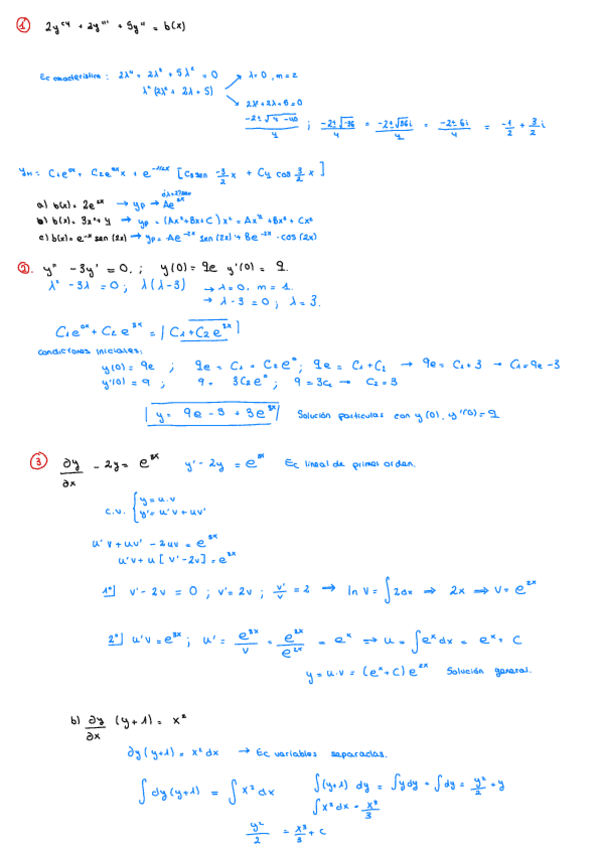 ① 2y⁽⁴ + 2y''' + 5y'' = b(x)
Ec característica : 2λ⁴ + 2λ³ + 5λ² = 0 → λ=0, m=2
λ²(2λ² + 2λ + 5)
→ 2λ²+2λ+5=0
(-2±√(4-40))/4 ; (-2±√-36)/4 = (-2±√36i)/4 = (-2±6i)/4 = -1/2 + 3/2 i
yH = C1e⁰ˣ + C2e⁰ˣx + e^(-1/2x) [C3 sen -3/2 x + C4 cos 3/2 x]
a) b(x) = 2e²ˣ → yp → Ae²ˣ
b) b(x) = 3x²+y → yp = (Ax²+Bx+C)x² = Ax⁴+Bx³+Cx²
c) b(x) = e⁻ˣ sen(2x) → yp = Ae⁻²ˣ sen(2x) + Be⁻²ˣ · cos(2x)
②. y'' - 3y' = 0. ; y(0) = 9e y'(0) = 9.
λ² - 3λ = 0 ; λ(λ-3) → λ=0, m=1.
→ λ-3=0 ; λ=3.
C1e⁰ˣ + C2e³ˣ = |C1+C2e³ˣ|
condiciones iniciales;
y(0) = 9e ; 9e = C1 + C2e⁰ ; 9e = C1+C2 → 9e = C1+3 → C1=9e-3
y'(0) = 9 ; 9 = 3C2e⁰ ; 9=3C2 → C2=3
|y = 9e - 3 + 3e³ˣ| Solución particular con y(0), y'(0)=9
③ ∂y/∂x - 2y = e³ˣ y' - 2y = e³ˣ Ec lineal de primer orden.
c.v. { y=u.v
y'=u'v+uv'
u'v+uv' - 2uv = e³ˣ
u'v+u[v'-2v]=e³ˣ
1º] v'-2v = 0 ; v'=2v ; v'/v = 2 → ln v = ∫2dx ⇒ 2x ⇒ v=e²ˣ
2º] u'v=e³ˣ ; u' = e³ˣ/v = e³ˣ/e²ˣ = eˣ ⇒ u=∫eˣdx = eˣ + C
y=u.v = (eˣ+C)e²ˣ Solución general.
b) ∂y/∂x (y+1) = x²
∂y(y+1) = x²dx → Ec variables separadas.
∫dy(y+1) = ∫x²dx ∫(y+1) dy = ∫ydy + ∫dy = y²/2 + y
∫x²dx = x³/3
y²/2 = x³/3 + C